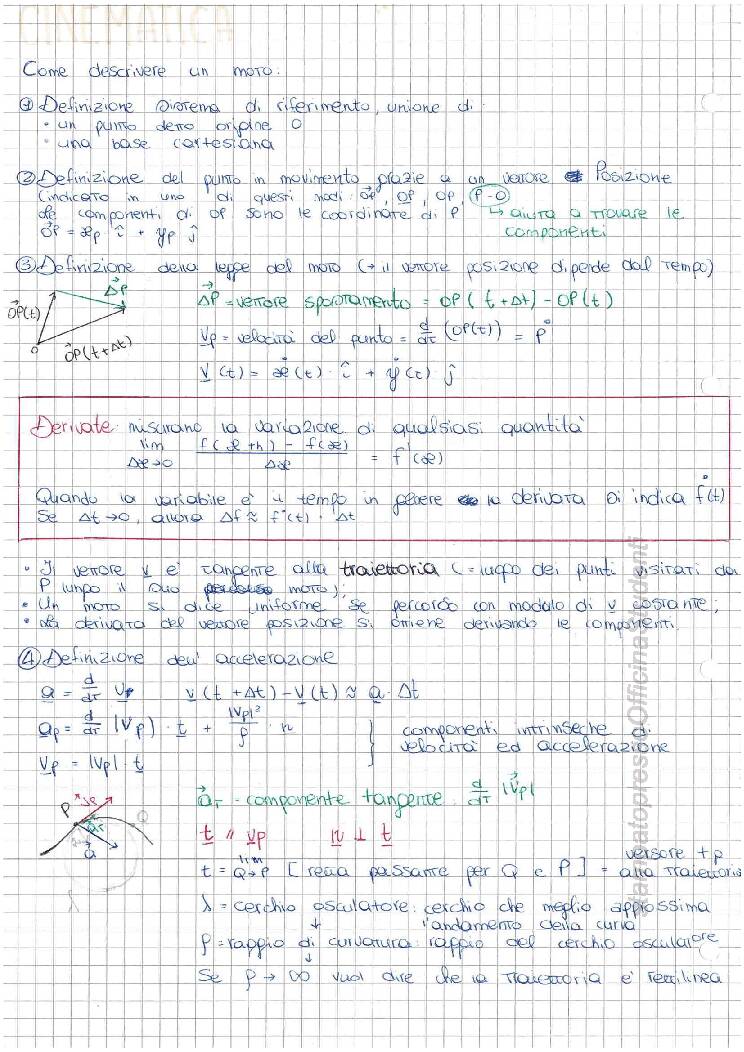 CINEMATICA
Come descrivere un moto:
① Definizione sistema di riferimento, unione di:
• un punto detto origine O
• una base cartesiana
② Definizione del punto in movimento grazie a un vettore Posizione
(indicato in uno di questi modi: O⃗P, OP, OP, P-O)
Le componenti di OP sono le coordinate di P ↳ aiuta a trovare le componenti
O⃗P = xₚ î + yₚ ĵ
③ Definizione della legge del moto (→ il vettore posizione dipende dal tempo)
O⃗P(t) Δ⃗P O O⃗P(t+Δt)
Δ⃗P = vettore spostamento = OP(t+Δt) - OP(t)
vₚ = velocità del punto = d/dt (OP(t)) = Ṗ
v(t) = ẋ(t) · î + ẏ(t) · ĵ
Derivate: misurano la variazione di qualsiasi quantità
lim Δx→0 f(x+h) - f(x) / Δx = f'(x)
Quando la variabile è il tempo in genere la derivata si indica ḟ(t)
Se Δt→0, allora Δf ≈ ḟ(t) · Δt
• Il vettore v è tangente alla traiettoria (= luogo dei punti visitati da
P lungo il suo moto);
• Un moto si dice uniforme se percorso con modulo di v costante;
• La derivata del vettore posizione si ottiene derivando le componenti.
④ Definizione dell'accelerazione
a = d/dt vₚ v(t+Δt) - v(t) ≈ a · Δt
aₚ = d/dt |vₚ| · t + |vₚ|²/ρ · n
vₚ = |vₚ| · t
} componenti intrinseche di
velocità ed accelerazione
P Q a⃗ λ
a⃗ᴛ - componente tangente: d/dt |v⃗ₚ|
t // vₚ n ⊥ t
t = lim Q→P [retta passante per Q e P] = versore tg alla traiettoria
λ = cerchio osculatore: cerchio che meglio approssima
l'andamento della curva
ρ = raggio di curvatura: raggio del cerchio osculatore
Se ρ → ∞ vuol dire che la traiettoria è rettilinea
StampatopressoOfficinaStudenti